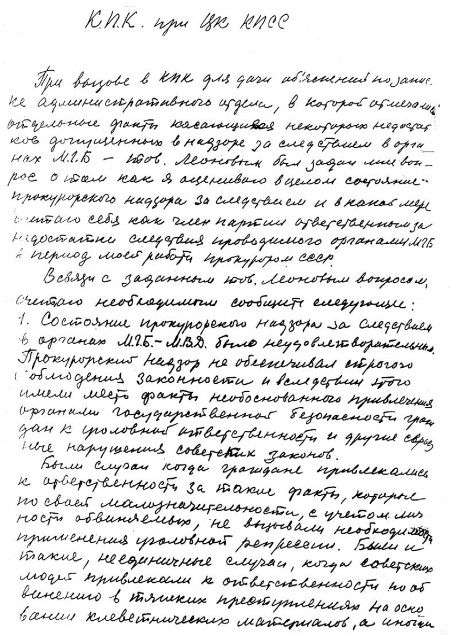 К.П.К. при ЦК КПСС
При вызове в КПК для дачи объяснения по запис-
ке административного отдела, в которой отмечались
отдельные факты касающиеся некоторых недостат
ков допущенных в надзоре за следствием в орга-
нах МГБ – тов. Леоновым был задан мне воп-
рос о том как я оцениваю в целом состояние
прокурорского надзора за следствием и в какой мере
считаю себя как член партии ответственным за
недостатки следствия проводимого органами МГБ
в период моей работы прокурором СССР.
В связи с заданным тов. Леоновым вопросом,
считаю необходимым сообщить следующее:
1. Состояние прокурорского надзора за следствием
в органах МГБ-МВД было неудовлетворительным.
Прокурорский надзор не обеспечивал строгого
соблюдения законности и вследствии этого
имели место факты необоснованного привлечения
органами государственной безопасности граж
дан к уголовной ответственности и другие серьез
ные нарушения советских законов.
Были случаи когда граждане привлекались
к ответственности за такие факты, которые
по своей малозначительности, с учетом лич
ности обвиняемых, не вызывали необходимости
применения уголовной репрессии. Были и
такие, неединичные случаи, когда советских
людей привлекали к ответственности по об
винению в тяжких преступлениях на осно
вании клеветнических материалов, а иногда